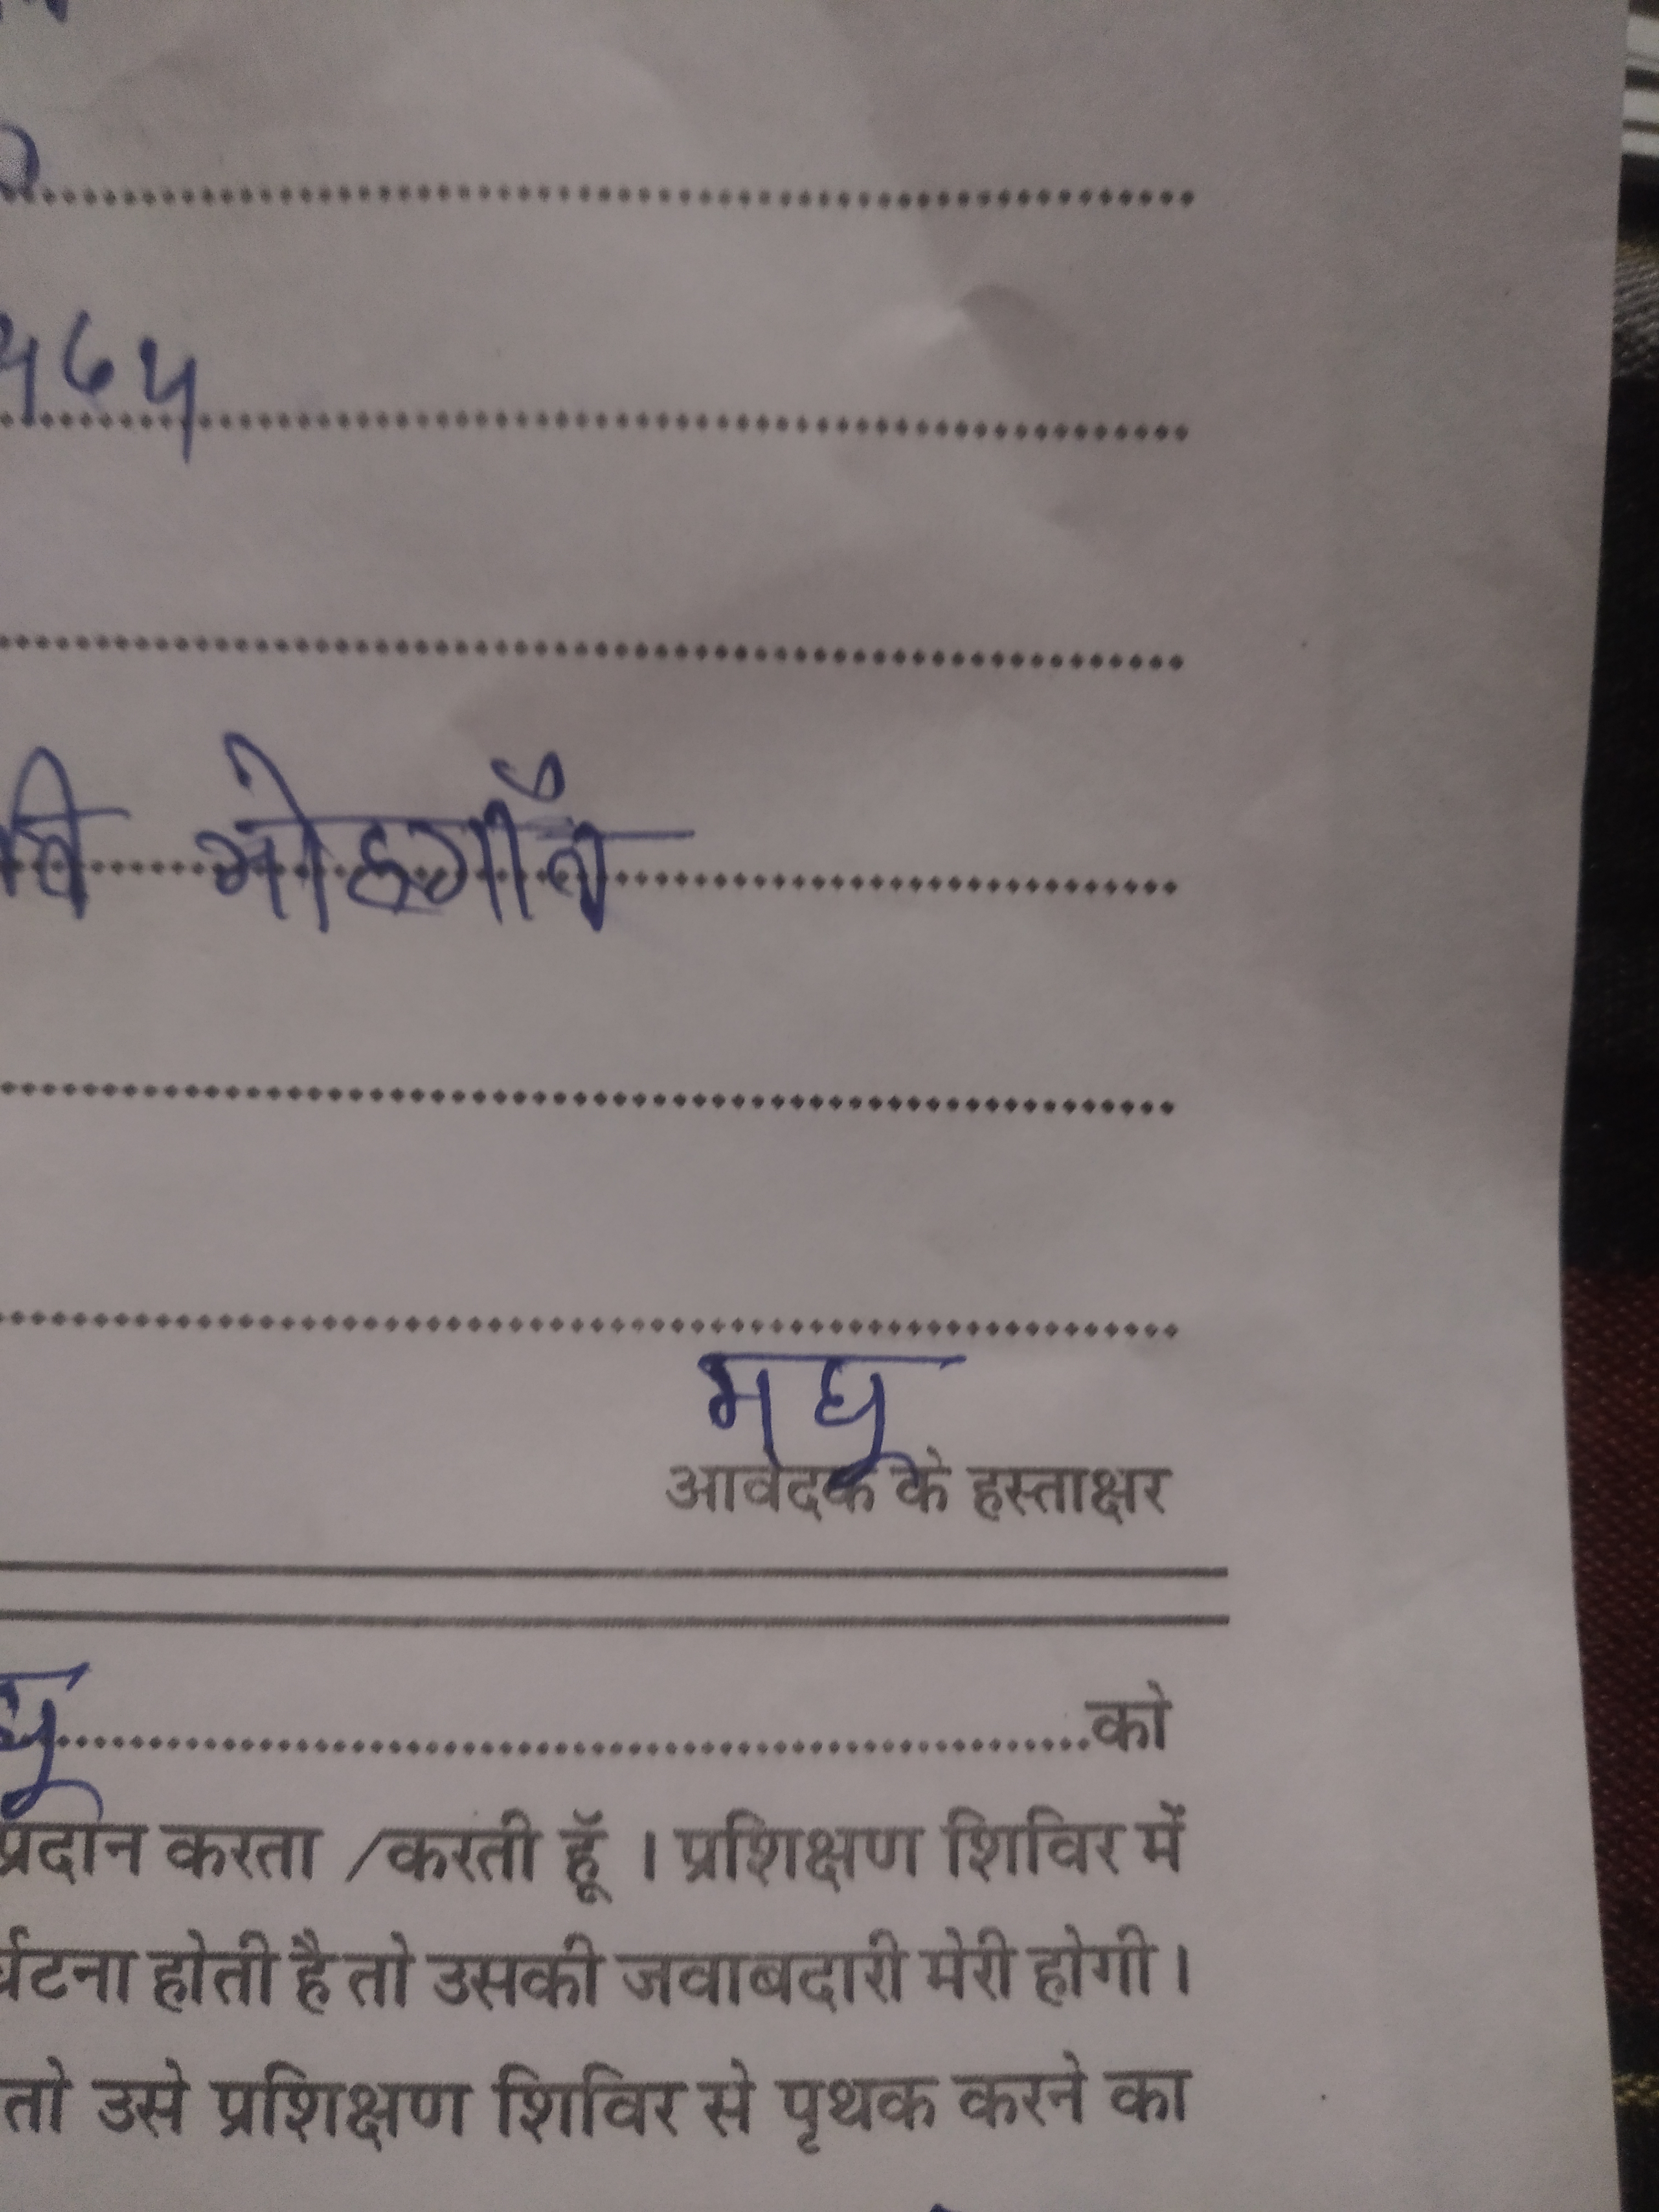 ५६५
मोहगाँव
मधु
आवेदक के हस्ताक्षर
को
प्रदान करता /करती हूँ । प्रशिक्षण शिविर में
होती है तो उसकी जवाबदारी मेरी होगी ।
तो उसे प्रशिक्षण शिविर से पृथक करने का